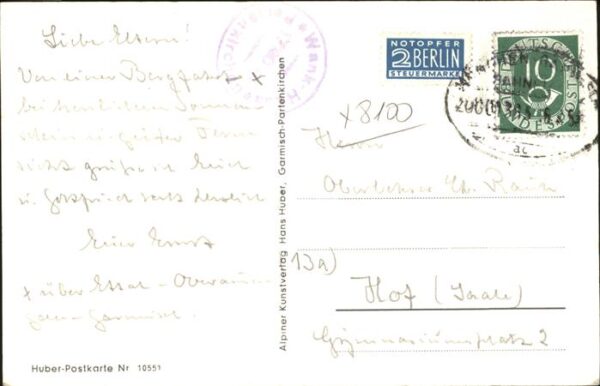 Liebe Eltern!
Von einer Bergfahrt x
bei herrlichem Sonnen-
schein u. guter Fern-
sicht grüßt Euch
u. Gottfried recht herzlich
Euer Ernst
x über Ettal - Oberammer-
gau - Garmisch.
Huber-Postkarte Nr 10551
Alpiner Kunstverlag Hans Huber, Garmisch-Partenkirchen
NOTOPFER
2 BERLIN
STEUERMARKE
DEUTSCHE
10
BUNDESPOST
BAHNPOST
x 8100
Herrn
Oberlehrer
13a)
Hof (Saale)
Gymnasiumplatz 2